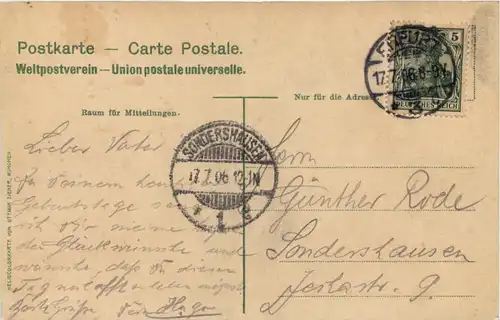 Postkarte — Carte Postale.
Weltpostverein — Union postale universelle.
Nur für die Adresse
Raum für Mitteilungen.
5
DEUTSCHES REICH
ERFURT
17.7.06.8-9V.
SONDERSHAUSEN
17.7.06.12-1N
* 1 b
Lieber Vater
Zu Deinem
Geburtstage
ich Dir meine
Glückwünsche und
wünsche, daß Du diesen
Tag noch oft erleben mögest
Herzl. Grüße Dein Hugo
Herrn
Günther Rode
Sondershausen
9.
HELIOCOLORKARTE VON OTTMAR ZIEHER, MÜNCHEN